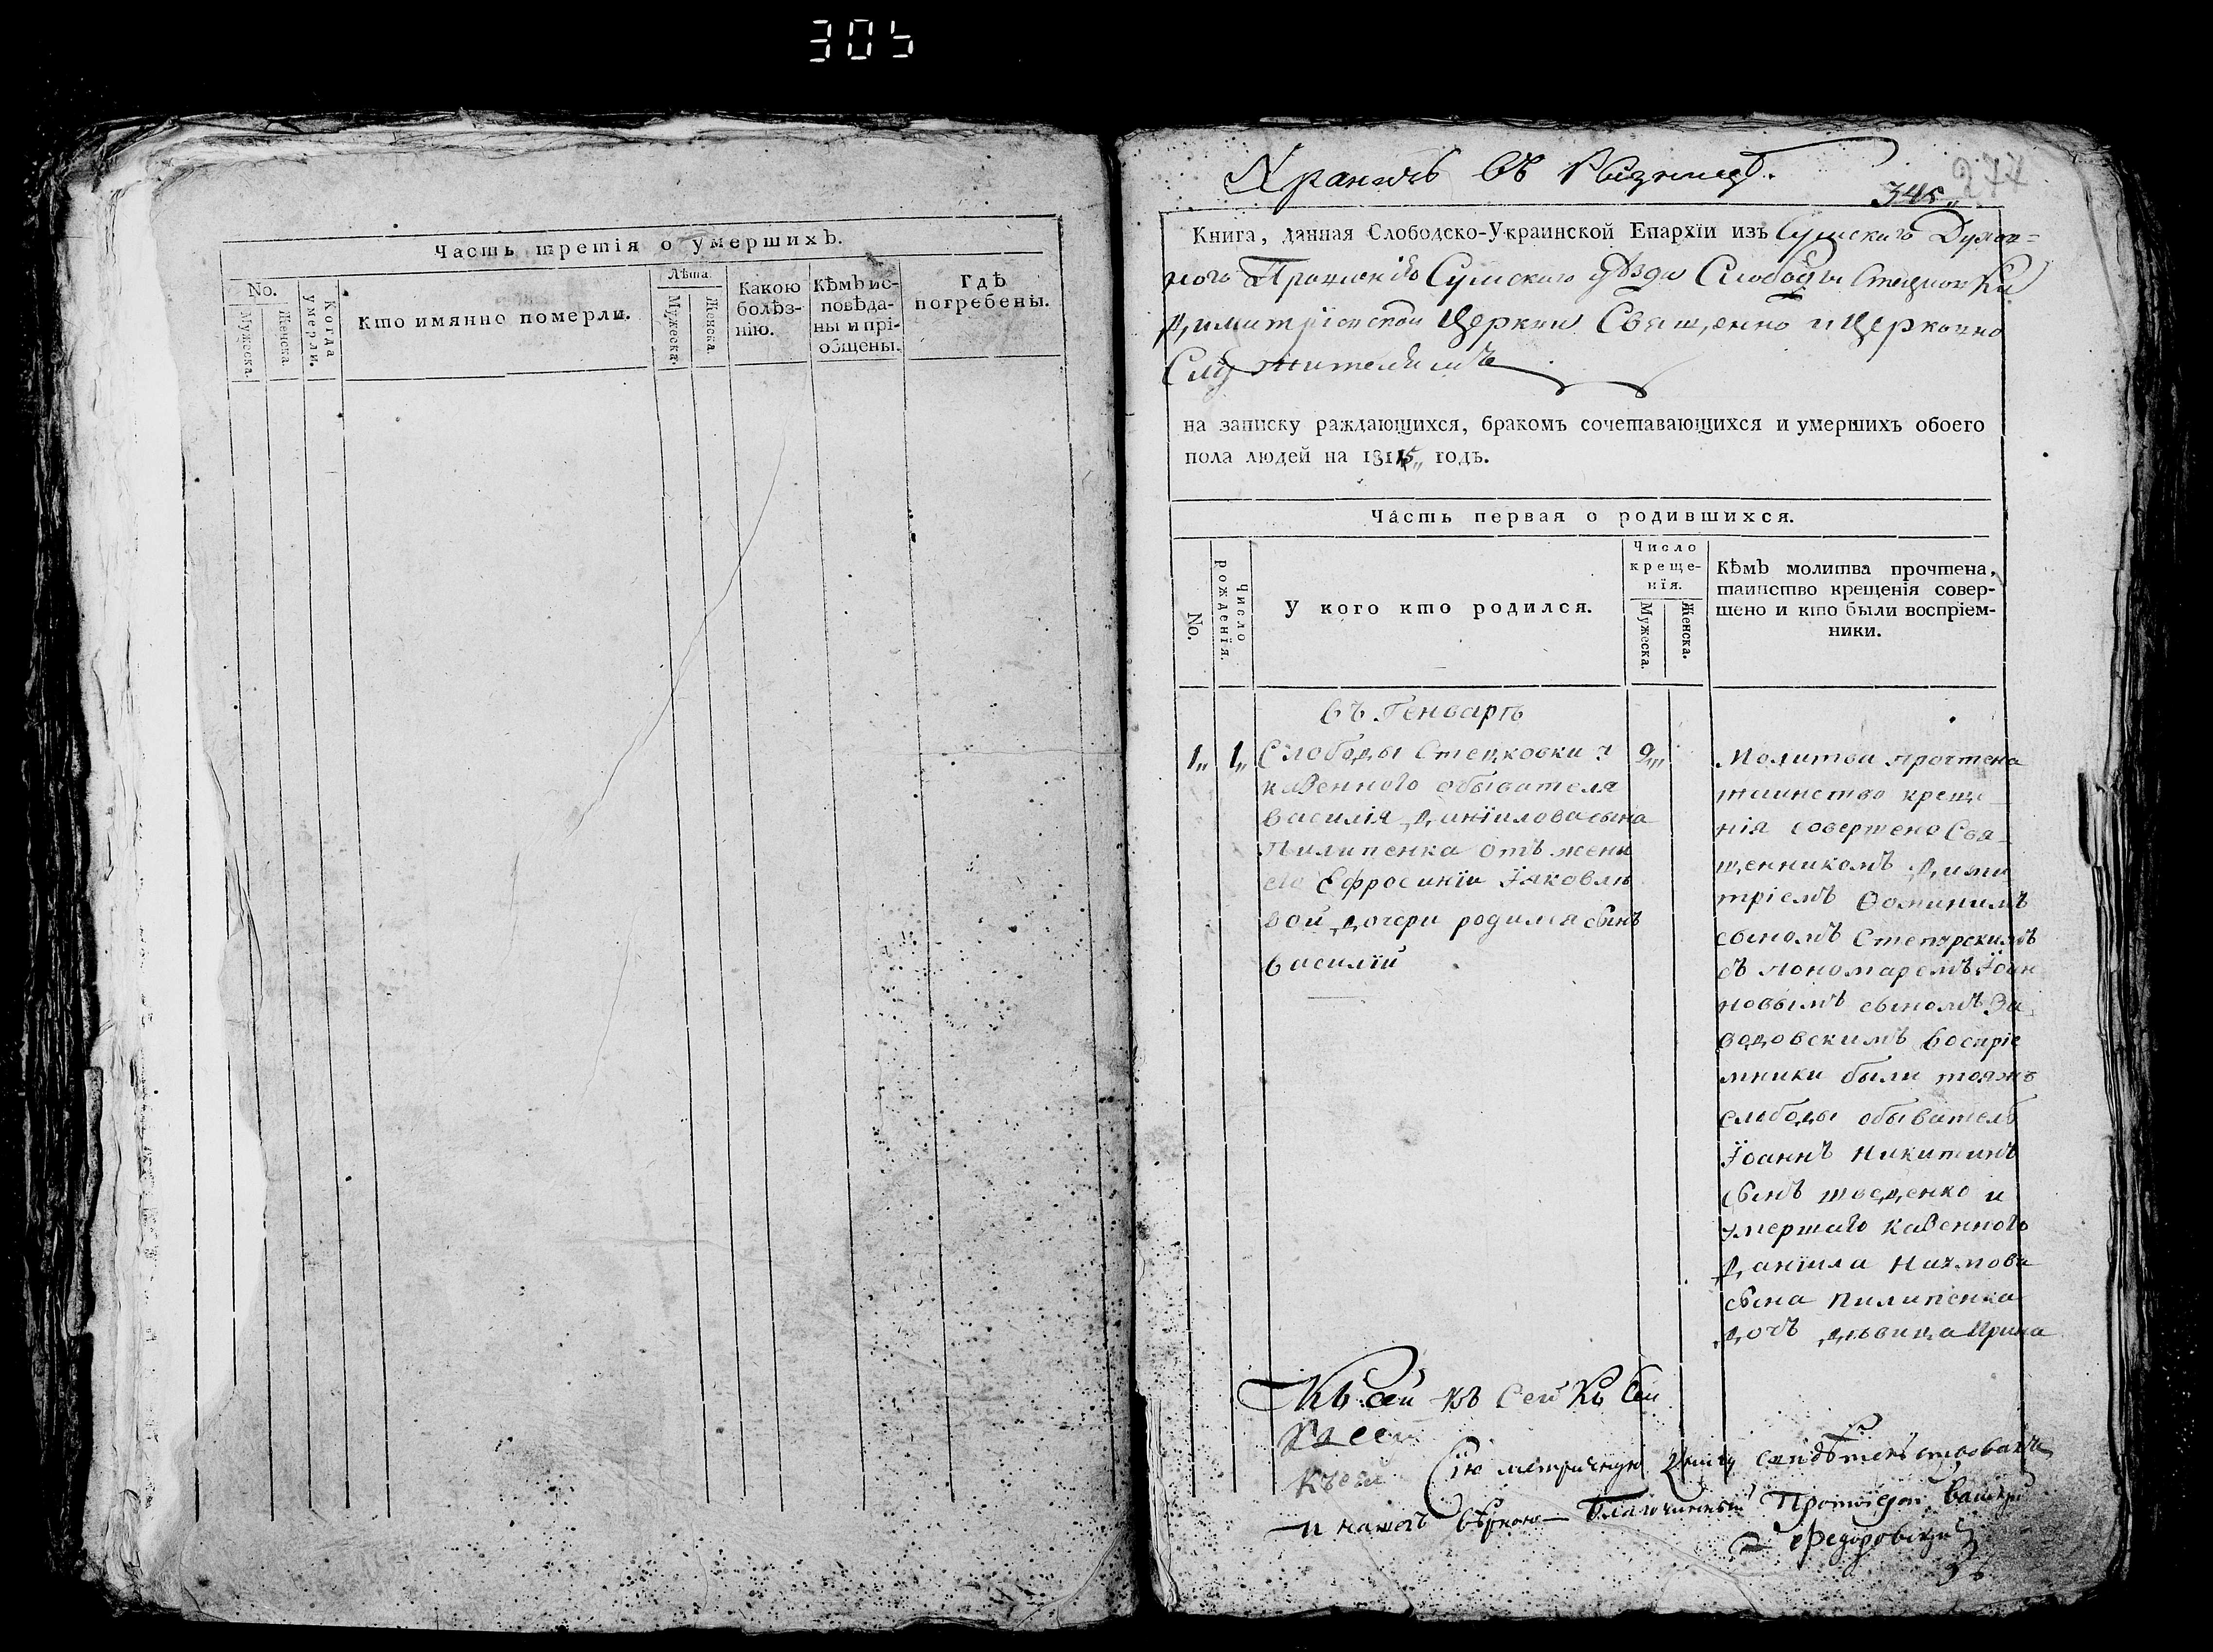 305
Часть третія о умершихъ.
No.
Мужеска.
Женска.
Когда умерли.
Кто имянно померли.
Лѣта.
Мужеска.
Женска.
Какою
болѣз-
нію.
Кѣмъ ис-
повѣда-
ны и прі-
общены.
Гдѣ
погребены.
Хранить въ Ризницѣ.
345„ 277
Книга, данная Слободско-Украинской Епархіи изъ Сумскаго Духов=
ного Правленія Сумскаго уѣзда Слободы Стецковки
Димитріевской Церкви Священно и Церковно
Служителямъ
на записку раждающихся, бракомъ сочетавающихся и умершихъ обоего
пола людей на 1815„ годъ.
Часть первая о родившихся.
No.
Число рожденія.
У кого кто родился.
Число
креще-
нія.
Мужеска.
Женска.
Кѣмъ молитва прочтена,
таинство крещенія совер-
шено и кто были воспріем-
ники.
въ Генварѣ
1„ 1„ Слободы Стецковки у 2„
казенного обывателя
Василія Даніилова сына
Пилипенка отъ жени
его Ефросиніи Іаковле
вой дочери родился сынъ
Василій
Молитва прочтена
таинство креще
нія совершено Свя
щенникомъ Дими
тріемъ Ѳоминимъ
сыномъ Степурскимъ
съ пономаремъ Іоан
новымъ сыномъ За
водовскимъ воспріе
мники были тояжъ
слободы обыватель
Іоаннъ Никитинъ
сынъ и
умершаго казенного
Даніила Наумова
сына Пилипенка
дочъ дѣвица Ирина
Къ сей къ Сей Къ Сей
Къ сей
Къ сей
Сію метричную Книгу свидѣтельствовалъ
и нашолъ вѣрною Благочинный Протоіерей Василій
Федоровскій